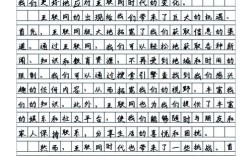 们更好地应对互联网时代的变化。
互联网的出现给我们带来了巨大的机遇。
首先，互联网极大地拓宽了我们获取信息的渠
道。通过互联网，我们可以轻松地获取各种新
闻、知识和教育资源，不再受到地域和时间的
限制。我们可以通过搜索引擎查找到我们感兴
趣的任何内容，从而拓宽我们的视野，丰富我
们的知识。此外，互联网也为我们提供了丰富
的娱乐和社交平台，使我们能够随时与朋友和
家人保持联系，分享生活的喜悦和困扰。
然而，互联网时代也带来了一些挑战。首